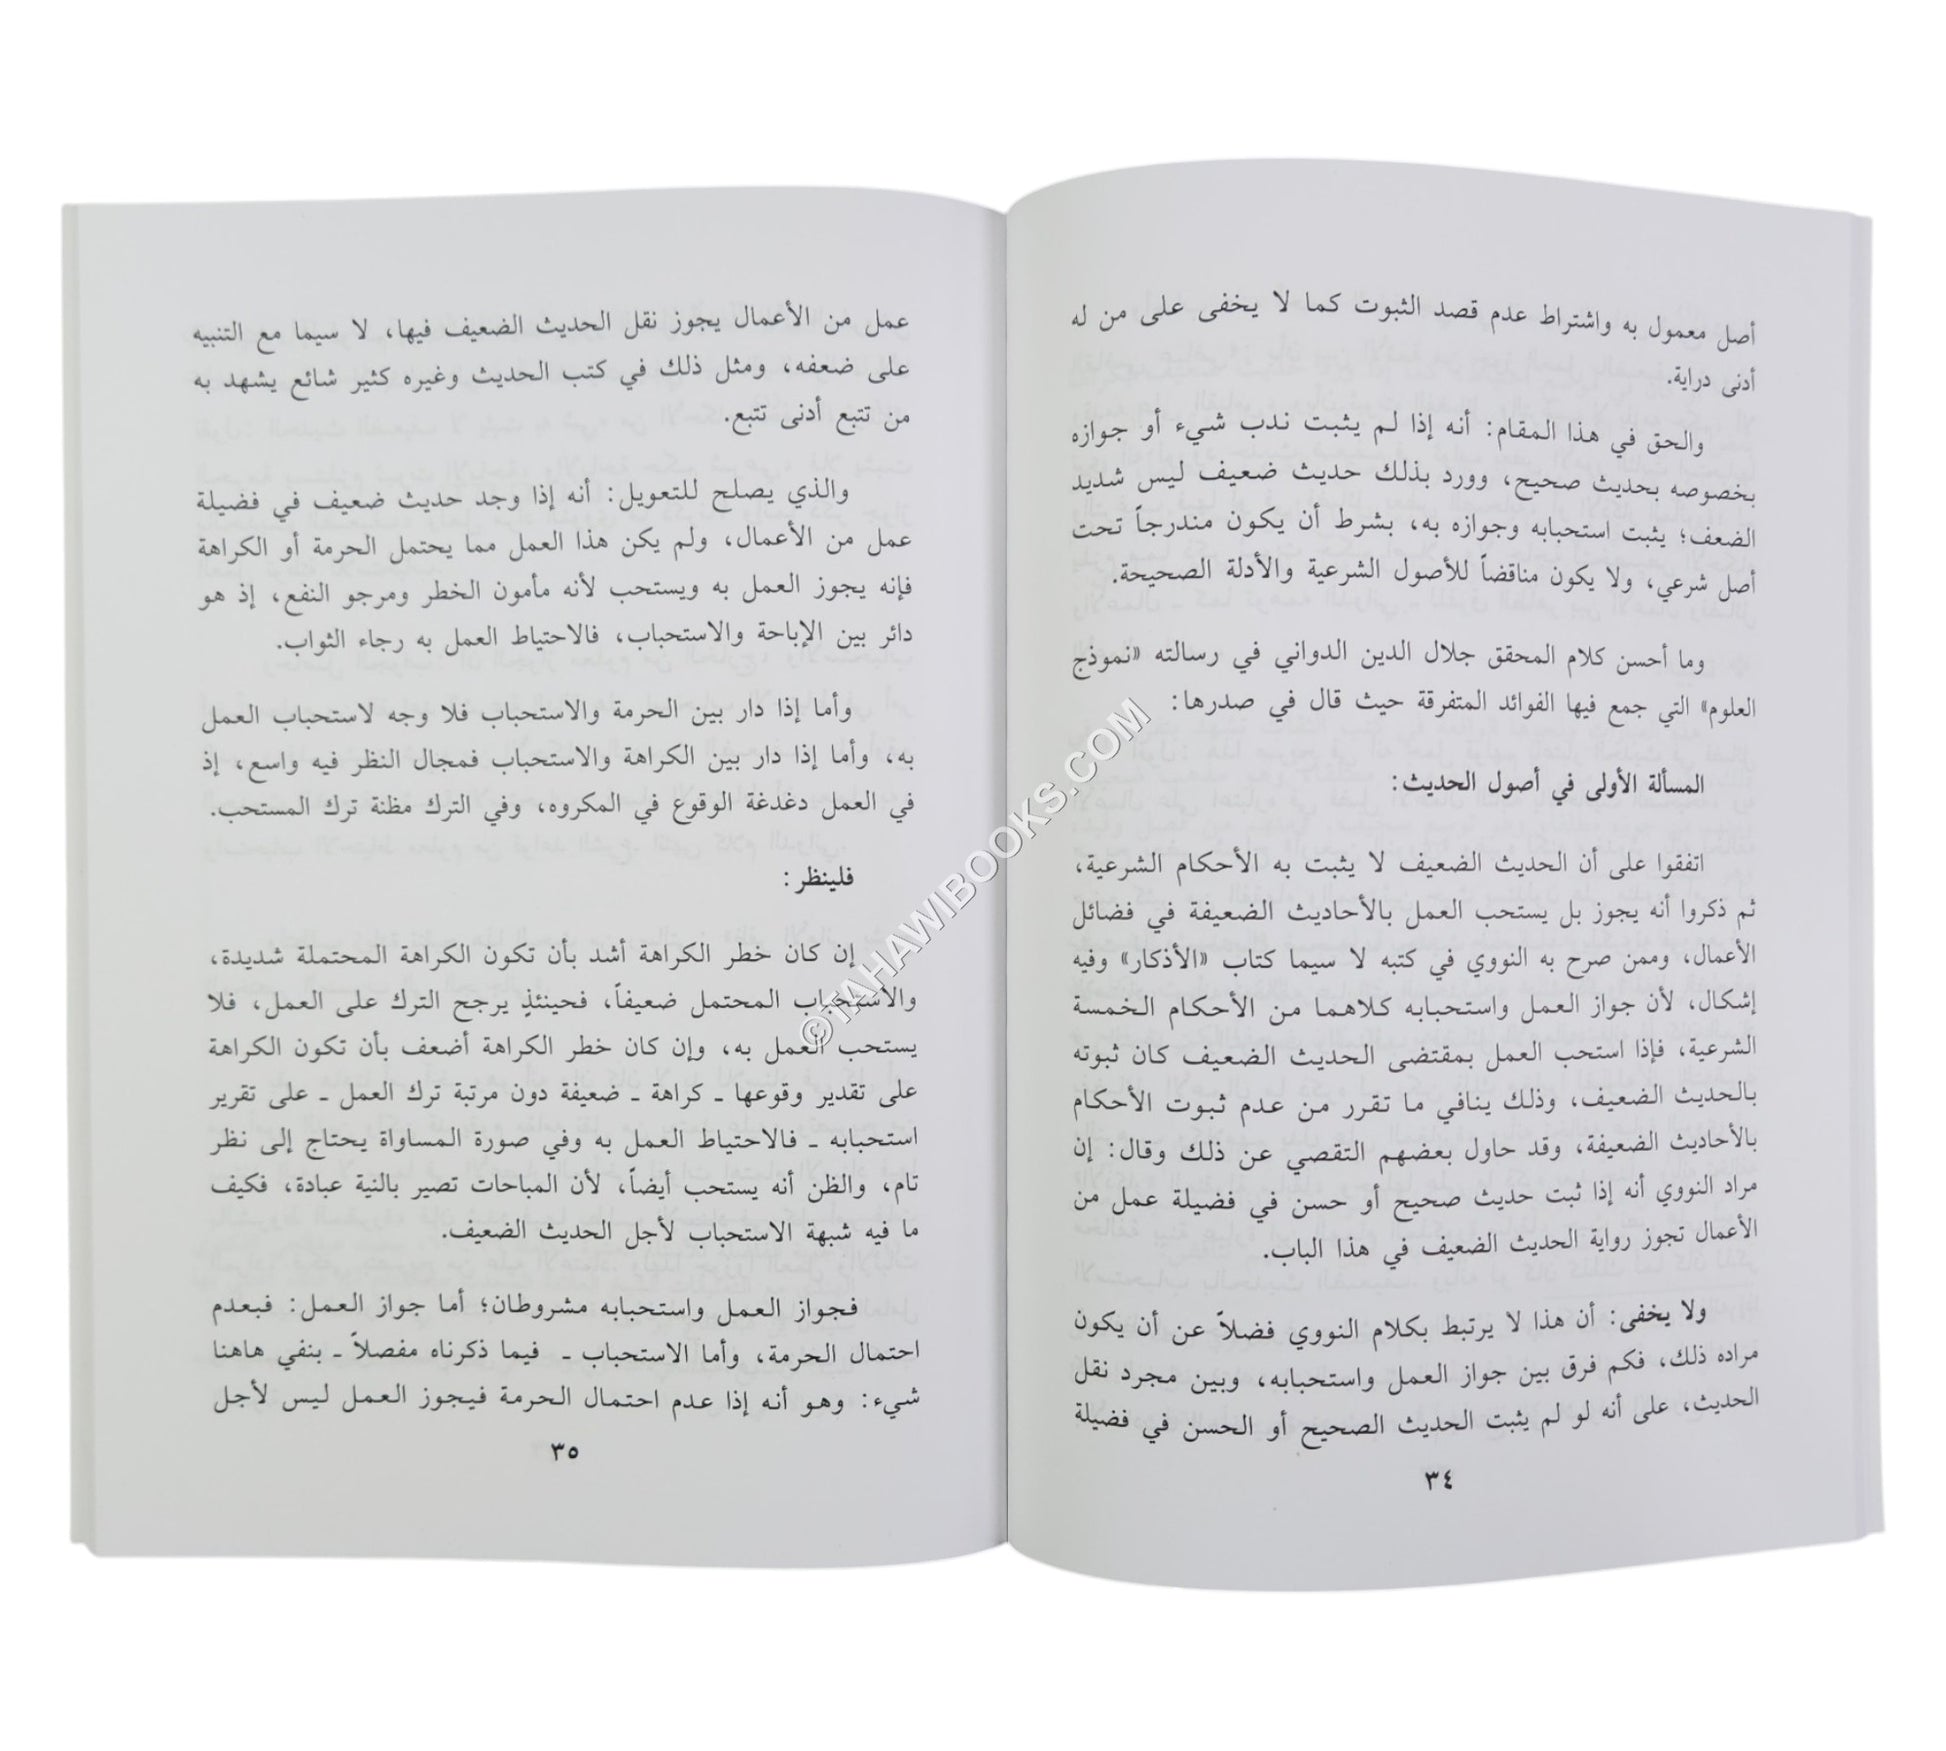 أصل معمول به واشتراط عدم قصد الثبوت كما لا يخفى على من له
أدنى دراية.
والحق في هذا المقام: أنه إذا لم يثبت ندب شيء أو جوازه
بخصوصه بحديث صحيح، وورد بذلك حديث ضعيف ليس شديد
الضعف؛ يثبت استحبابه وجوازه به، بشرط أن يكون مندرجاً تحت
أصل شرعي، ولا يكون مناقضاً للأصول الشرعية والأدلة الصحيحة.
وما أحسن كلام المحقق جلال الدين الدواني في رسالته «نموذج
العلوم» التي جمع فيها الفوائد المتفرقة حيث قال في صدرها:
المسألة الأولى في أصول الحديث:
اتفقوا على أن الحديث الضعيف لا يثبت به الأحكام الشرعية،
ثم ذكروا أنه يجوز بل يستحب العمل بالأحاديث الضعيفة في فضائل
الأعمال، وممن صرح به النووي في كتبه لا سيما كتاب «الأذكار» وفيه
إشكال، لأن جواز العمل واستحبابه كلاهما من الأحكام الخمسة
الشرعية، فإذا استحب العمل بمقتضى الحديث الضعيف كان ثبوته
بالحديث الضعيف، وذلك ينافي ما تقرر من عدم ثبوت الأحكام
بالأحاديث الضعيفة، وقد حاول بعضهم التقصي عن ذلك وقال: إن
مراد النووي أنه إذا ثبت حديث صحيح أو حسن في فضيلة عمل من
الأعمال تجوز رواية الحديث الضعيف في هذا الباب.
ولا يخفى: أن هذا لا يرتبط بكلام النووي فضلاً عن أن يكون
مراده ذلك، فكم فرق بين جواز العمل واستحبابه، وبين مجرد نقل
الحديث، على أنه لو لم يثبت الحديث الصحيح أو الحسن في فضيلة
٣٤
عمل من الأعمال يجوز نقل الحديث الضعيف فيها، لا سيما مع التنبيه
على ضعفه، ومثل ذلك في كتب الحديث وغيره كثير شائع يشهد به
من تتبع أدنى تتبع.
والذي يصلح للتعويل: أنه إذا وجد حديث ضعيف في فضيلة
عمل من الأعمال، ولم يكن هذا العمل مما يحتمل الحرمة أو الكراهة
فإنه يجوز العمل به ويستحب لأنه مأمون الخطر ومرجو النفع، إذ هو
دائر بين الإباحة والاستحباب، فالاحتياط العمل به رجاء الثواب.
وأما إذا دار بين الحرمة والاستحباب فلا وجه لاستحباب العمل
به، وأما إذا دار بين الكراهة والاستحباب فمجال النظر فيه واسع، إذ
في العمل دغدغة الوقوع في المكروه، وفي الترك مظنة ترك المستحب.
فلينظر:
إن كان خطر الكراهة أشد بأن تكون الكراهة المحتملة شديدة،
والاستحباب المحتمل ضعيفاً، فحينئذٍ يرجح الترك على العمل، فلا
يستحب العمل به، وإن كان خطر الكراهة أضعف بأن تكون الكراهة
على تقدير وقوعها ـ كراهة ـ ضعيفة دون مرتبة ترك العمل ـ على تقرير
استحبابه ـ فالاحتياط العمل به وفي صورة المساواة يحتاج إلى نظر
تام، والظن أنه يستحب أيضاً، لأن المباحات تصير بالنية عبادة، فكيف
ما فيه شبهة الاستحباب لأجل الحديث الضعيف.
فجواز العمل واستحبابه مشروطان؛ أما جواز العمل: فبعدم
احتمال الحرمة، وأما الاستحباب ـ فيما ذكرناه مفصلاً ـ بنفي هاهنا
شيء: وهو أنه إذا عدم احتمال الحرمة فيجوز العمل ليس لأجل
٣٥
©TAHAWIBOOKS.COM